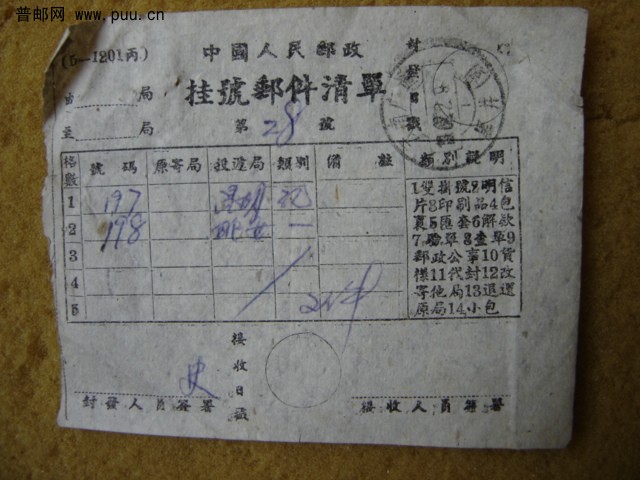 普邮网 www.puu.cn
(5—1201丙)
中國人民郵政
挂號郵件清單
由 局
至 局
第 28 號
封發日戳
格數 號碼 原寄局 投遞局 類別 備註 類別說明
1 197
2 198
3
4
5
1雙掛號2明信
片3印刷品4包
裹5匯套6解款
7驗單8查單9
郵政公事10貨
樣11代封12改
寄他局13退還
原局14小包
接收日戳
史
封發人員簽署
接收人員簽署